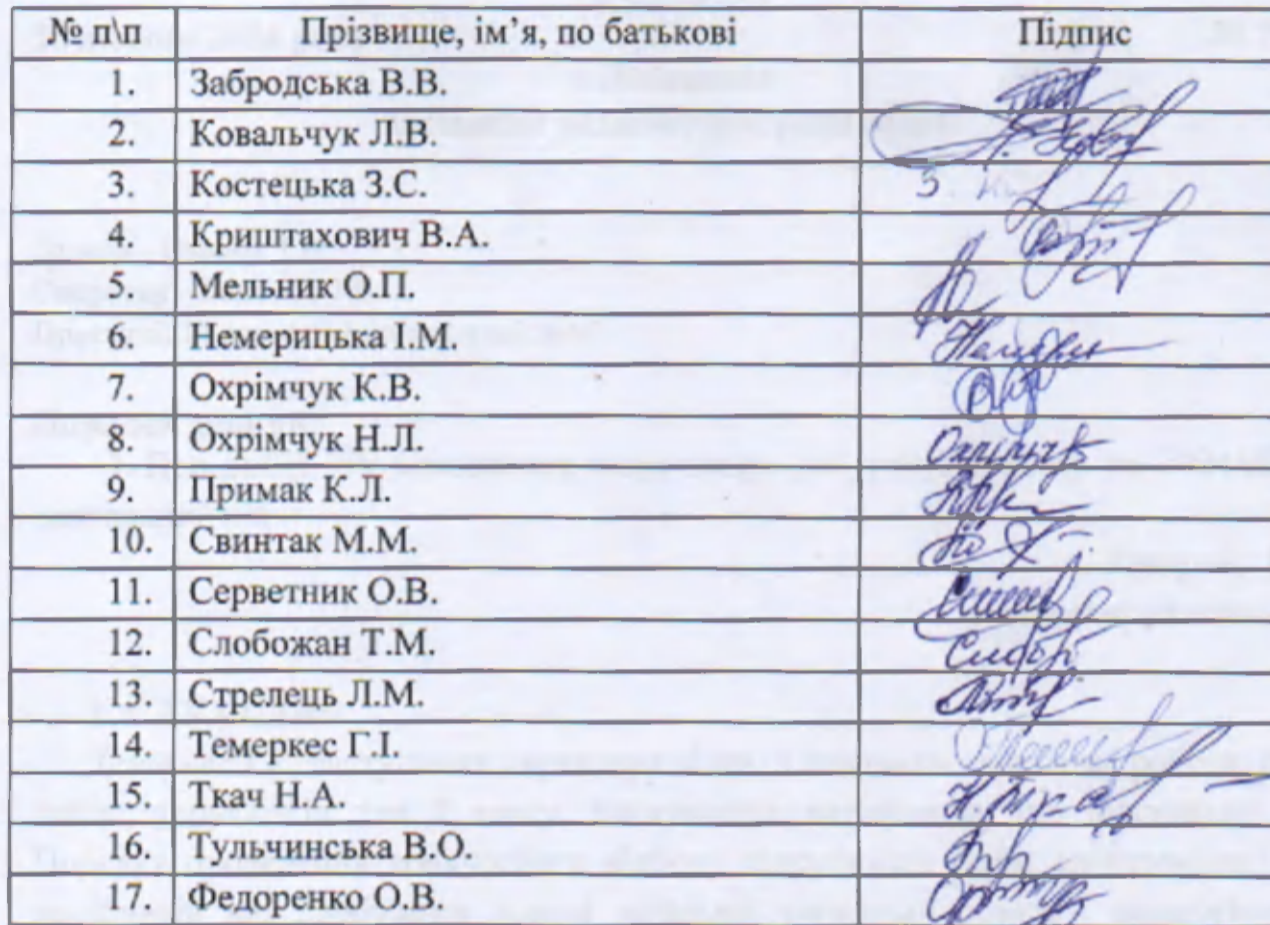 № п\п Прізвище, ім’я, по батькові Підпис
1. Забродська В.В.
2. Ковальчук Л.В.
3. Костецька З.С.
4. Криштахович В.А.
5. Мельник О.П.
6. Немерицька І.М.
7. Охрімчук К.В.
8. Охрімчук Н.Л.
9. Примак К.Л.
10. Свинтак М.М.
11. Серветник О.В.
12. Слобожан Т.М.
13. Стрелець Л.М.
14. Темеркес Г.І.
15. Ткач Н.А.
16. Тульчинська В.О.
17. Федоренко О.В.